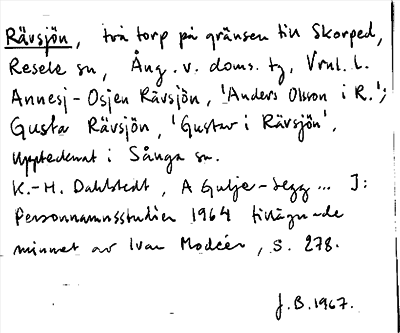 Rävsjön, två torp på gränsen till Skorped,
Resele sn, Ång. v. doms. tg, Vnl. l.
Annesj-Osjen Rävsjön, 'Anders Olsson i R.';
Gusta Rävsjön, 'Gustav i Rävsjön',
Upptecknat i Sånga sn.
K.-H. Dahlstedt, A Gulje-Segg... I:
Personnamnsstudier 1964 tillägnade
minnet av Ivar Modéer, s. 278.
J.B. 1967.